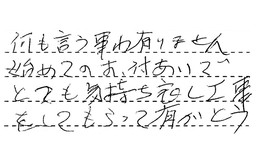 何も言う事わ有りません
始めてのお対あいで
とても気持ち宜し工事
をしてもらって有がとう